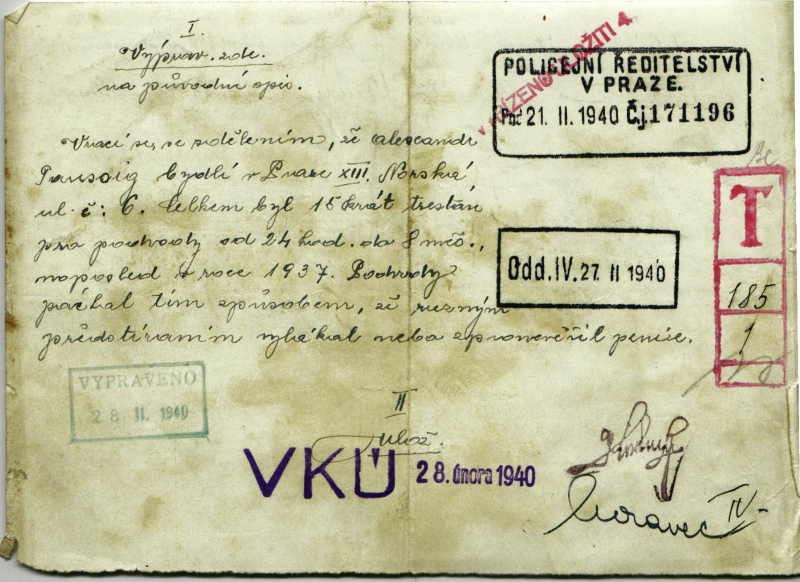 I.
Výprav. zde.
na původní spis.
Vrací se, se sdělením, že Alexandr
Taussig bydlí v Praze XIII. Norská
ul. č: 6. Celkem byl 15 krát trestán
pro podvody od 24 hod. do 8 měs.,
naposled v roce 1937. Podvody
páchal tím způsobem, že různým
předstíráním vylákal neba zpronevěřil peníze.
II
ulož.
ULOŽITI 4.
POLICEJNÍ ŘEDITELSTVÍ
V PRAZE.
21. II. 1940 Čj. 171196
Odd. IV. 27. II 1940
T
185
1
VYPRAVENO
28 II. 1940
VKÚ 28. února 1940
Moravec IV-